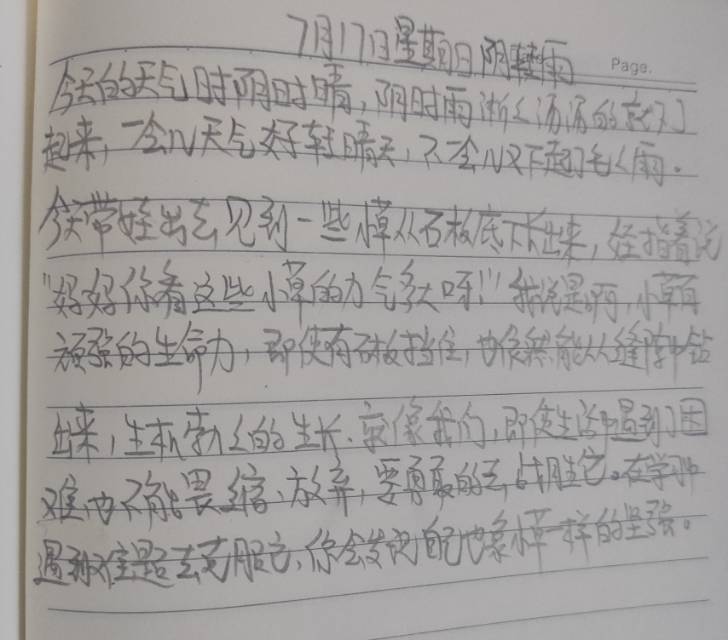 7月17日星期日阴转雨
Page.
今天的天气时阴时晴，阴时雨淅く沥沥的就又
起来，一会儿天气好转晴天，不会儿又下起了毛く雨.
今天带娃出去见到一些小草从石板底下长出来，娃指着说
"妈妈你看这些小草的力气多大呀!"我说是啊，小草有
顽强的生命力，即使有石板挡住，也依然能从缝隙中钻
出来，生机勃く的生长.就像我们，即使生活中遇到了困
难也不能畏缩、放弃，要勇敢的去战胜它。在学习中
遇到难题去克服它，你会发现自己也象小草一样的坚强。